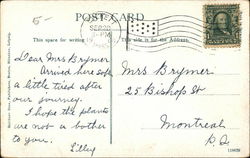 5-
POST CARD
SEP 20
This space for writing
This side is for the Address.
Dear Mrs Brymer
Arrived here safe
a little tired after
our journey.
I hope the plants
are not a bother
to you.
Lilly
Mrs Brymer
25 Bishop St
Montreal
P.Q.